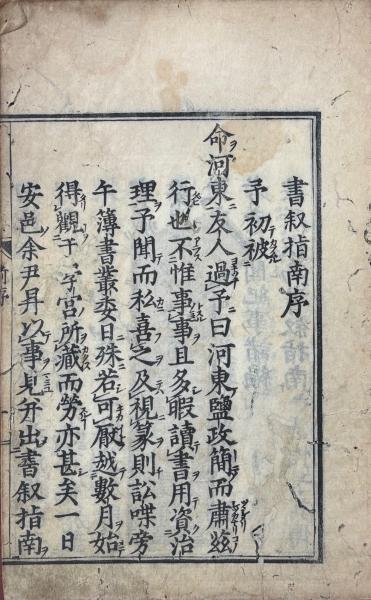 書叙指南序
予初被
命河東友人過予曰河東鹽政簡而肅茲
行也不惟事事且多暇讀書用資治
理予聞而私喜之及視篆則訟喋旁
午簿書叢委日殊若可厭越數月始
得觀于學宮所藏而勞亦甚矣一日
安邑余尹丹以事見并出書叙指南